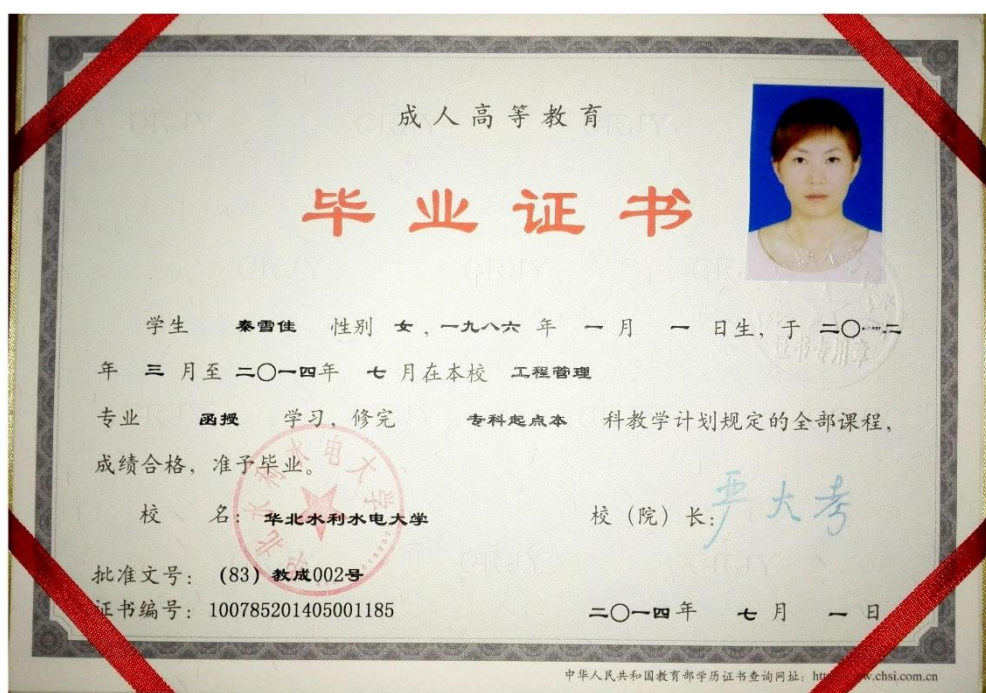 成人高等教育
毕业证书
学生 秦雪佳 性别 女，一九八六 年 一 月 一 日生，于 二〇一二
年 三 月至 二〇一四年 七 月在本校 工程管理
专业 函授 学习，修完 专科起点本 科教学计划规定的全部课程，
成绩合格，准予毕业。
校 名：华北水利水电大学
校（院）长：严大考
批准文号：(83) 教成002号
证书编号：100785201405001185
二〇一四年 七 月 一 日
华北水利水电大学
证书专用章
中华人民共和国教育部学历证书查询网址：
.chsi.com.cn